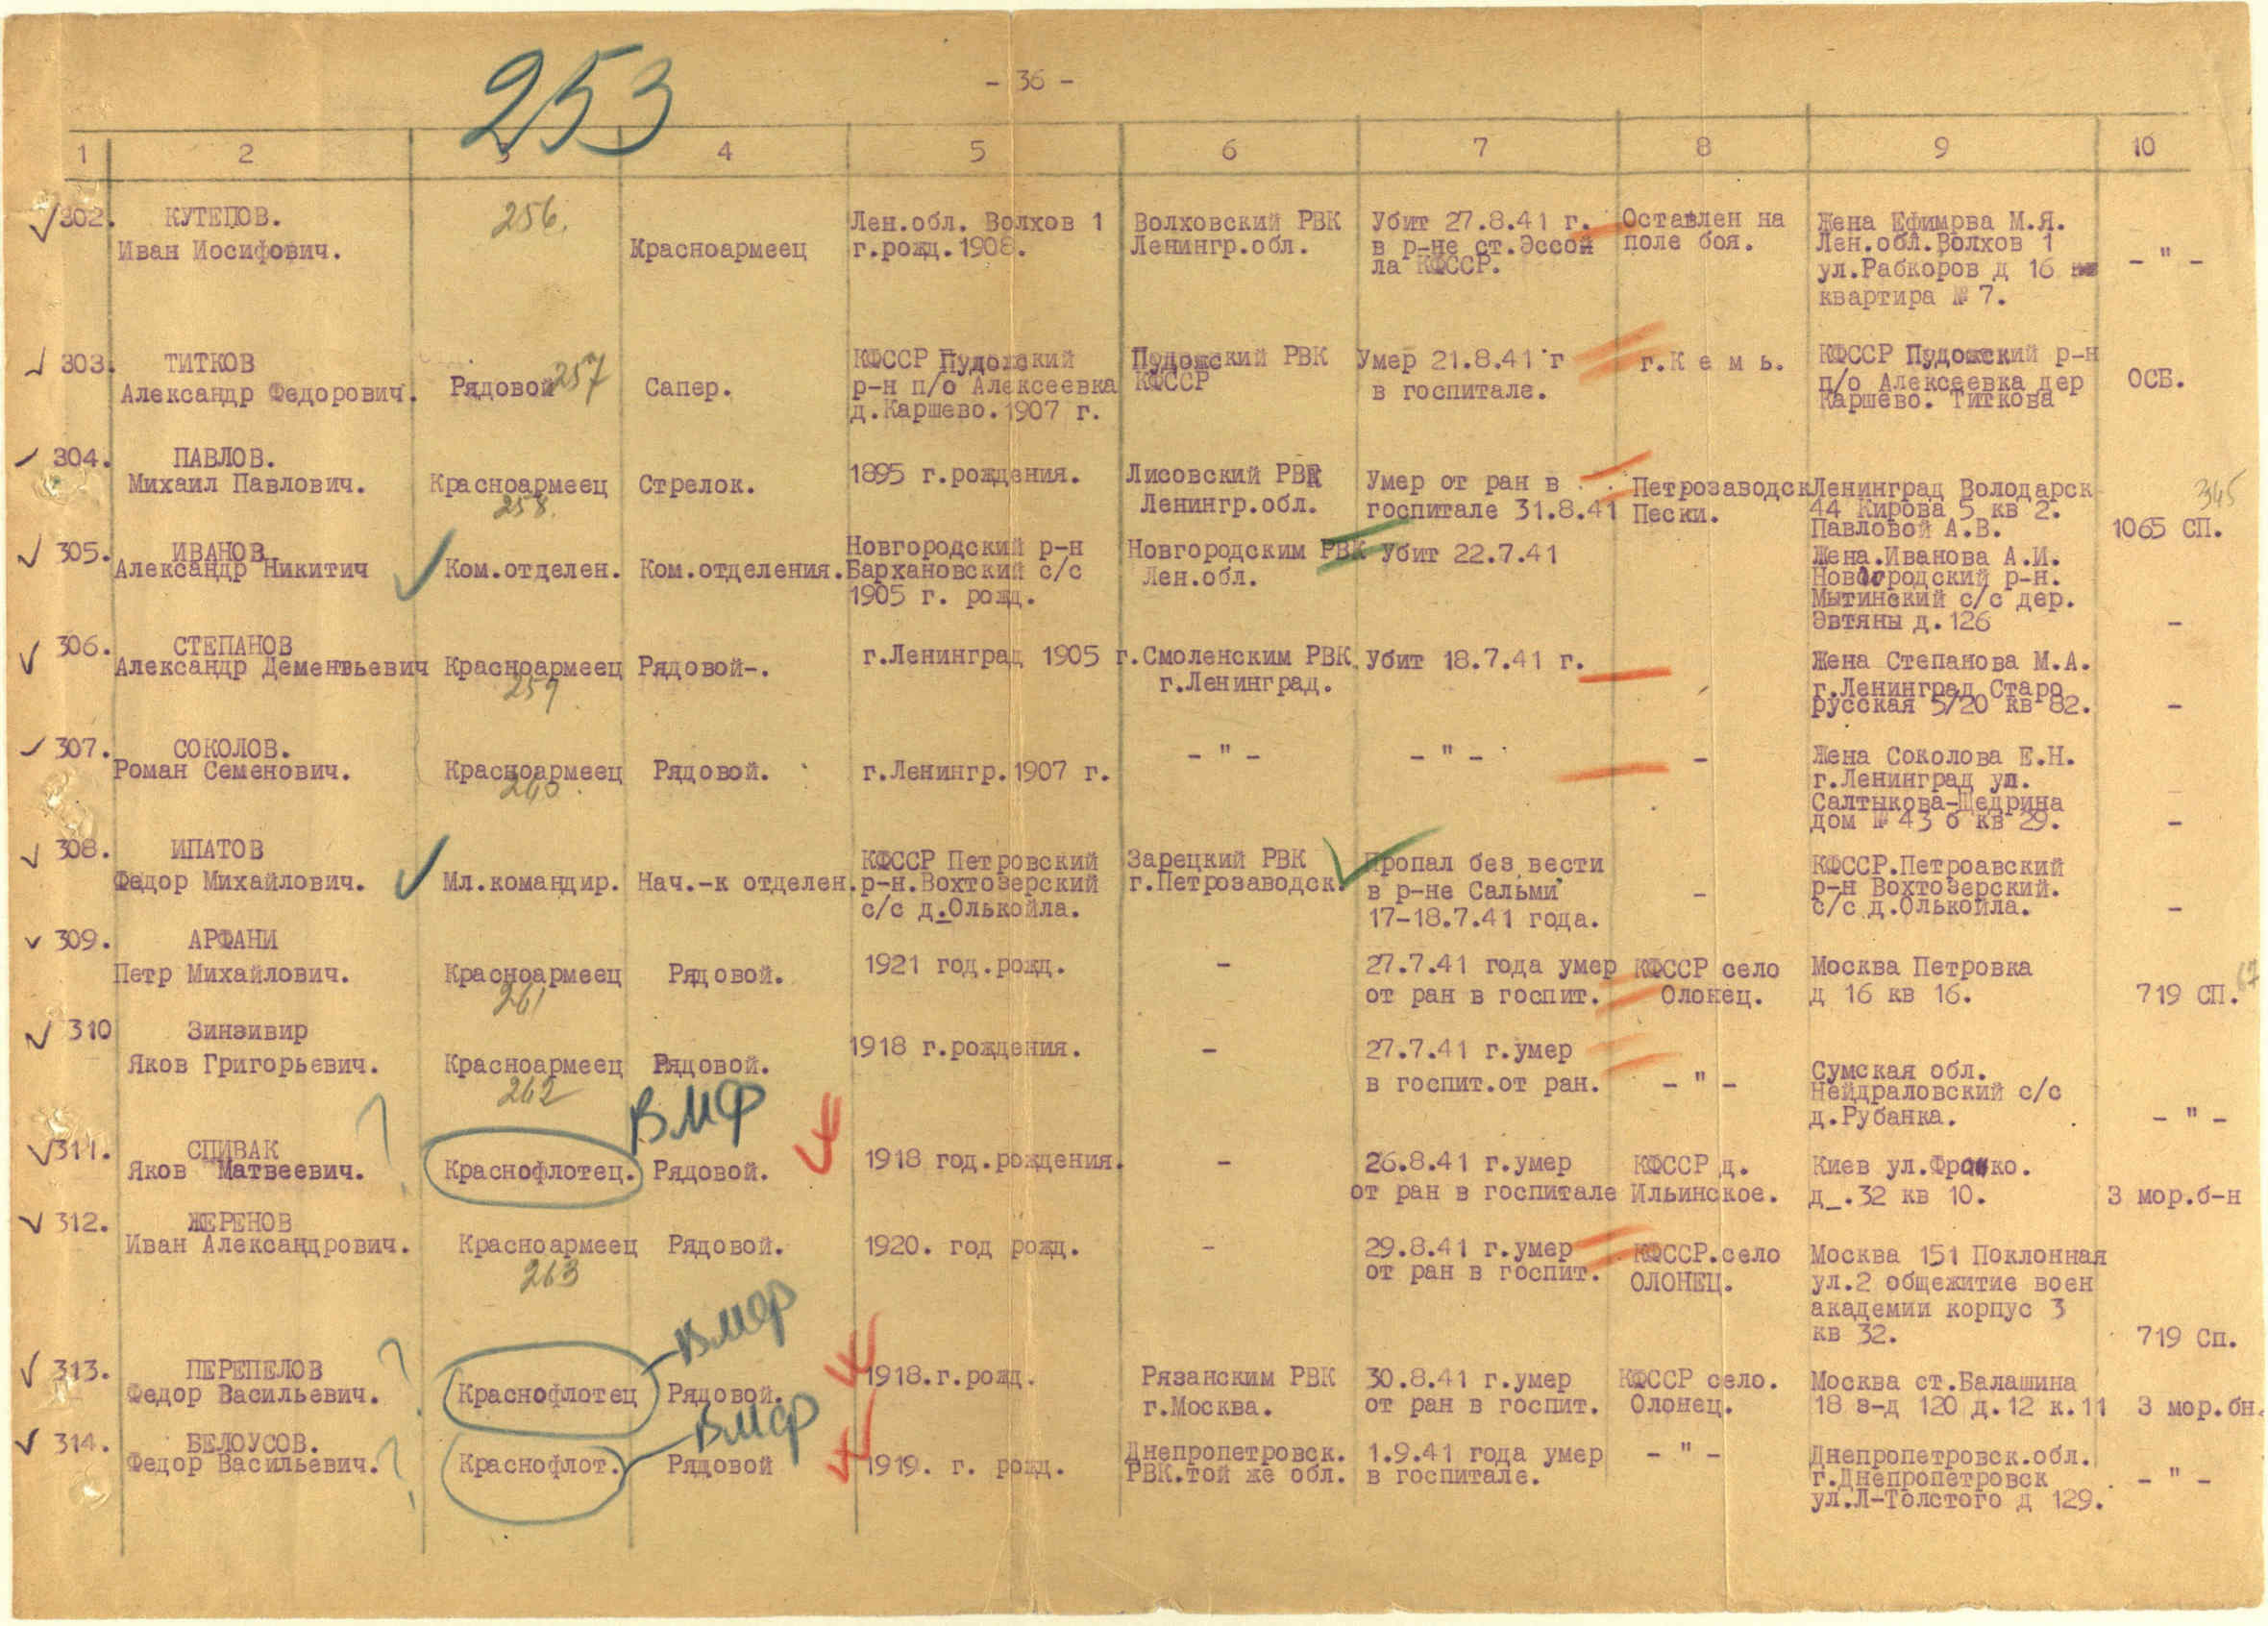 253
- 36 -
1 2 3 4 5 6 7 8 9 10
302. КУТЕПОВ.
Иван Иосифович.
256.
Красноармеец
Лен.обл. Волхов 1
г.рожд.1908.
Волховский РВК
Ленингр.обл.
Убит 27.8.41 г.
в р-не ст.Эссой
ла КФССР.
Оставлен на
поле боя.
Жена Ефимова М.Я.
Лен.обл.Волхов 1
ул.Рабкоров д 16
квартира № 7.
- " -
303. ТИТКОВ
Александр Федорович.
Рядовой
257
Сапер.
КФССР Пудожский
р-н п/о Алексеевка
д.Каршево.1907 г.
Пудожский РВК
КФССР
Умер 21.8.41 г
в госпитале.
г.К е м ь.
КФССР Пудожский р-н
п/о Алексеевка дер
Каршево. Титкова
ОСБ.
304. ПАВЛОВ.
Михаил Павлович.
Красноармеец
258.
Стрелок.
1895 г.рождения.
Лисовский РВК
Ленингр.обл.
Умер от ран в
госпитале 31.8.41
Петрозаводск
Пески.
Ленинград Володарск
44 Кирова 5 кв 2.
Павловой А.В.
345
1065 СП.
305. ИВАНОВ
Александр Никитич
Ком.отделен.
Ком.отделения.
Новгородский р-н
Бархановский с/с
1905 г. рожд.
Новгородским РВК
Лен.обл.
Убит 22.7.41
Жена.Иванова А.И.
Новогродский р-н.
Мытинский с/с дер.
Эвтяны д.126
-
306. СТЕПАНОВ
Александр Дементьевич
Красноармеец
259
Рядовой-.
г.Ленинград 1905 г.
Смоленским РВК
г.Ленинград.
Убит 18.7.41 г.
Жена Степанова М.А.
г.Ленинград Старо
русская 5/20 кв 82.
-
307. СОКОЛОВ.
Роман Семенович.
Красноармеец
260.
Рядовой.
г.Ленингр.1907 г.
- " -
- " -
-
Жена Соколова Е.Н.
г.Ленинград ул.
Салтыкова-Щедрина
дом № 43 б кв 29.
-
308. ИПАТОВ
Федор Михайлович.
Мл.командир.
Нач.-к отделен.
КФССР Петровский
р-н.Вохтозерский
с/с д.Олькойла.
Зарецкий РВК
г.Петрозаводск.
Пропал без вести
в р-не Сальми
17-18.7.41 года.
-
КФССР.Петроавский
р-н Вохтозерский.
с/с д.Олькойла.
-
309. АРФАНИ
Петр Михайлович.
Красноармеец
261
Рядовой.
1921 год.рожд.
-
27.7.41 года умер
от ран в госпит.
КФССР село
Олонец.
Москва Петровка
д 16 кв 16.
719 СП.
310 Зинзивир
Яков Григорьевич.
Красноармеец
262
Рядовой.
1918 г.рождения.
-
27.7.41 г.умер
в госпит.от ран.
- " -
Сумская обл.
Нейдраловский с/с
д.Рубанка.
- " -
311. СПИВАК
Яков Матвеевич.
?
Краснофлотец.
ВМФ
Рядовой.
1918 год.рождения.
-
26.8.41 г.умер
от ран в госпитале
КФССР д.
Ильинское.
Киев ул.Франко.
д_.32 кв 10.
3 мор.б-н
312. ЖЕРЕНОВ
Иван Александрович.
Красноармеец
263
Рядовой.
1920. год рожд.
-
29.8.41 г.умер
от ран в госпит.
КФССР.село
ОЛОНЕЦ.
Москва 151 Поклонная
ул.2 общежитие воен
академии корпус 3
кв 32.
719 Сп.
313. ПЕРЕПЕЛОВ
Федор Васильевич.
?
Краснофлотец
ВМФ
Рядовой.
1918.г.рожд.
Рязанским РВК
г.Москва.
30.8.41 г.умер
от ран в госпит.
КФССР село.
Олонец.
Москва ст.Балашина
18 з-д 120 д.12 к.11
3 мор.бн.
314. БЕЛОУСОВ.
Федор Васильевич.
?
Краснофлот.
ВМФ
Рядовой
1919. г. рожд.
Днепропетровск.
РВК.той же обл.
1.9.41 года умер
в госпитале.
- " -
Днепропетровск.обл.
г.Днепропетровск
ул.Л-Толстого д 129.
- " -